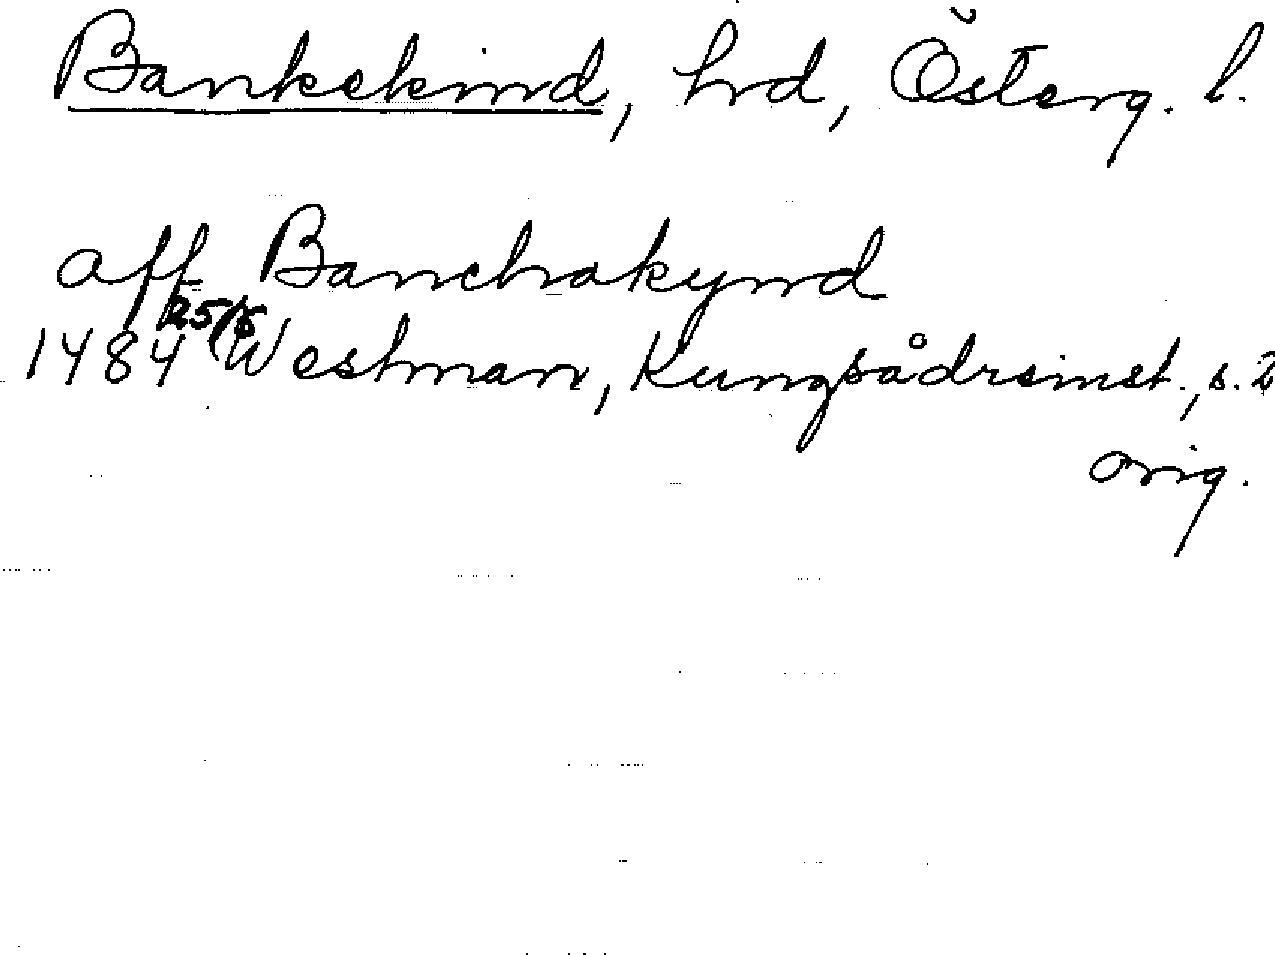 Bankekind, hrd, Österg. l.
aff Banchakynd
1484 25/5 Westman, Kungsådreinst., s. 2
orig.